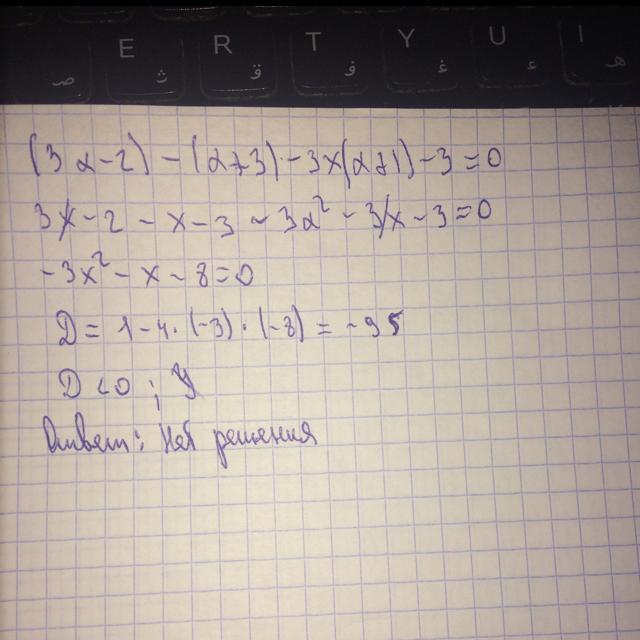 E R T Y U I
ص ث ق ف غ ء ه
(3x-2)-(x+3)-3x(x+1)-3=0
3x-2-x-3-3x²-3x-3=0
-3x²-x-8=0
D=1-4·(-3)·(-8)=-95
D<0;
Ответ: Нет решения